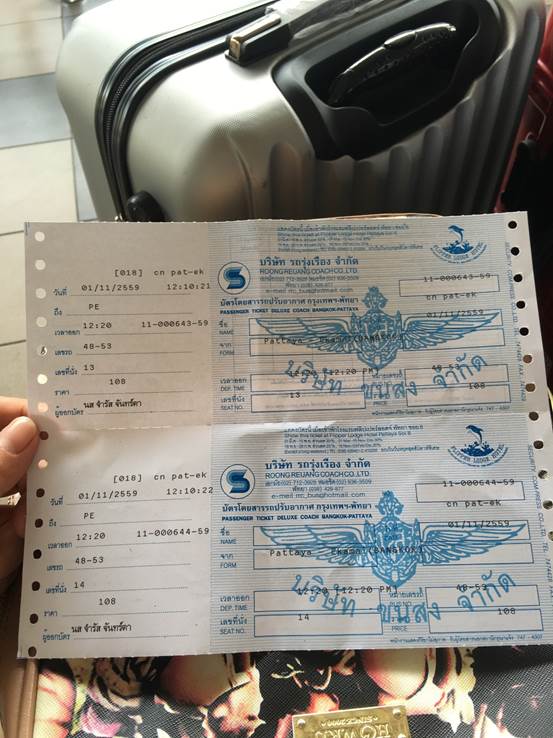 [018] cn pat-ek
วันที่ 01/11/2559 12:10:21
ถึง PE
เวลาออก 12:20 11-000643-59
เลขรถ 48-53
เลขที่นั่ง 13
ราคา 108
ผู้ออกบัตร นส จำรัส จันทร์ดา
Show this ticket at Flipper Lodge Hotel Pattaya Soi 8
FLIPPER LODGE HOTEL
S
บริษัท รถรุ่งเรือง จำกัด
ROONG REUANG COACH CO., LTD.
11-000643-59
cn pat-ek
บัตรโดยสารรถปรับอากาศ กรุงเทพฯ-พัทยา
PASSENGER TICKET DELUXE COACH BANGKOK-PATTAYA
01/11/2559
ชื่อ
NAME
จาก
FORM
Pattaya Ekamai(BANGKOK)
บริษัท ขนส่ง จำกัด
เวลาออก
DEP. TIME
12:20 PM
48-53
เลขที่นั่ง
SEAT NO.
13
108
[018] cn pat-ek
วันที่ 01/11/2559 12:10:22
ถึง PE
เวลาออก 12:20 11-000644-59
เลขรถ 48-53
เลขที่นั่ง 14
ราคา 108
ผู้ออกบัตร นส จำรัส จันทร์ดา
Show this ticket at Flipper Lodge Hotel Pattaya Soi 8
FLIPPER LODGE HOTEL
S
บริษัท รถรุ่งเรือง จำกัด
ROONG REUANG COACH CO., LTD.
11-000644-59
cn pat-ek
บัตรโดยสารรถปรับอากาศ กรุงเทพฯ-พัทยา
PASSENGER TICKET DELUXE COACH BANGKOK-PATTAYA
01/11/2559
ชื่อ
NAME
จาก
FORM
Pattaya Ekamai(BANGKOK)
บริษัท ขนส่ง จำกัด
เวลาออก
DEP. TIME
12:20 (12:20 PM)
หมายเลขรถ
48-53
เลขที่นั่ง
SEAT NO.
14
PRICE
108